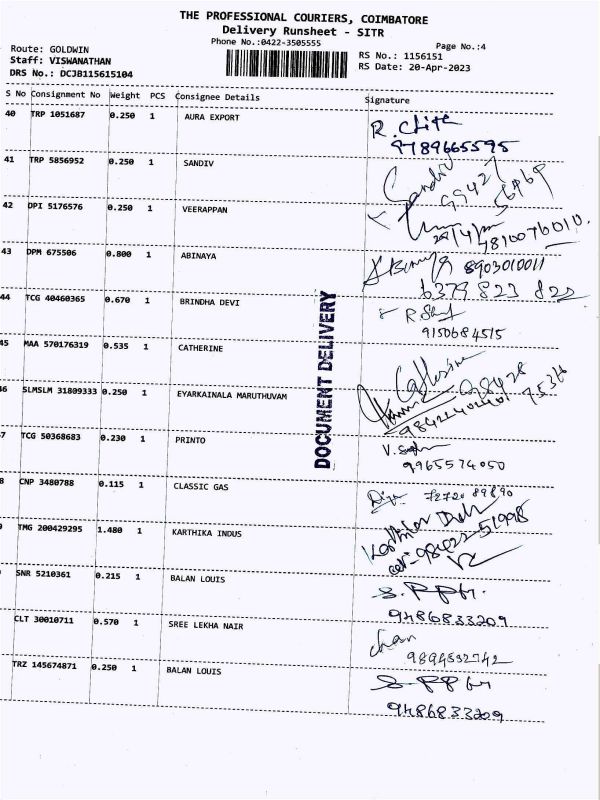 THE PROFESSIONAL COURIERS, COIMBATORE
Delivery Runsheet - SITR
Phone No.:0422-3505555
Page No.:4
Route: GOLDWIN
Staff: VISWANATHAN
DRS No.: DCJB115615104
RS No.: 1156151
RS Date: 20-Apr-2023
S No Consignment No Weight PCS Consignee Details Signature
40 TRP 1051687 0.250 1 AURA EXPORT
R. Chitra
9789665595
41 TRP 5856952 0.250 1 SANDIV
Sandiv
99427
42 DPI 5176576 0.250 1 VEERAPPAN
9810076010
43 DPM 675506 0.800 1 ABINAYA
Abinaya 8903010011
6379 823 822
44 TCG 40460365 0.670 1 BRINDHA DEVI
9150684515
45 MAA 570176319 0.535 1 CATHERINE
Catherine
98428
7536
46 SLMSLM 31809333 0.250 1 EYARKAINALA MARUTHUVAM
7 TCG 50368683 0.230 1 PRINTO
9965574050
8 CNP 3480788 0.115 1 CLASSIC GAS
72720 89890
9 TMG 200429295 1.480 1 KARTHIKA INDUS
cell-98422-51998
SNR 5210361 0.215 1 BALAN LOUIS
9486833209
CLT 30010711 0.570 1 SREE LEKHA NAIR
9894832742
TRZ 145674871 0.250 1 BALAN LOUIS
9486833209
DOCUMENT DELIVERY